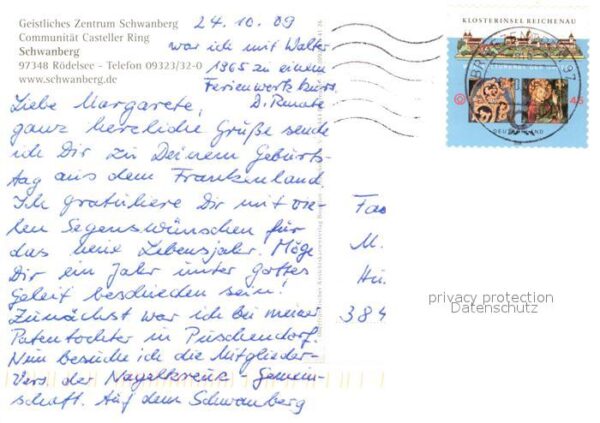 Geistliches Zentrum Schwanberg
Communität Casteller Ring
Schwanberg
97348 Rödelsee - Telefon 09323/32-0
www.schwanberg.de
24.10.09
Liebe Margarete,
ganz herzliche Grüße sende
ich Dir zu Deinem Geburts-
tag aus dem Frankenland
Ich gratuliere Dir mit vie-
len Segenswünschen für
das neue Lebensjahr. Möge
Dir ein Jahr unter Gottes
Geleit beschieden sein!
Zunächst war ich bei meiner
Patentochter in Puschendorf.
Nun besuche ich die Mitglieder-
Vers. der Nagelkreuz-Gemein-
schaft. Auf dem Schwanberg
war ich mit Walter
1965 zu einem
Ferienwerkkurs.
D. Renate
KLOSTERINSEL REICHENAU
45
DEUTSCHLAND
M.
384
privacy protection
Datenschutz